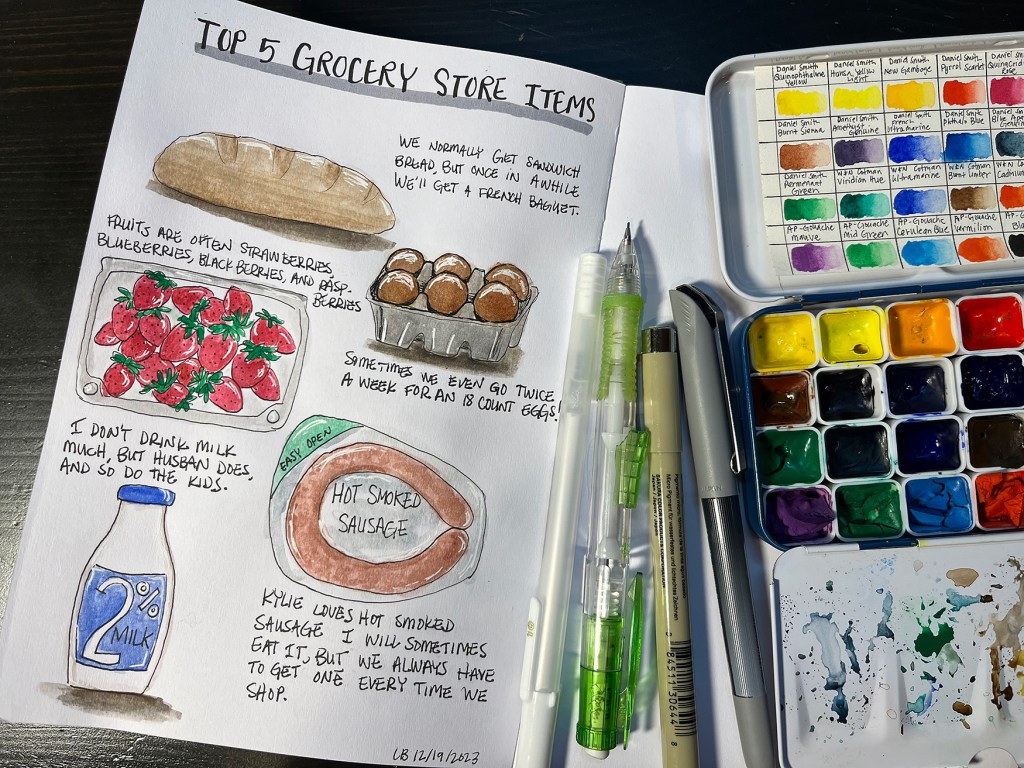 TOP 5 GROCERY STORE ITEMS
WE NORMALLY GET SANDWICH
BREAD, BUT ONCE IN A WHILE
WE'LL GET A FRENCH BAGUET.
FRUITS ARE OFTEN STRAWBERRIES,
BLUEBERRIES, BLACKBERRIES, AND RASP-
BERRIES
SOMETIMES WE EVEN GO TWICE
A WEEK FOR AN 18 COUNT EGGS!
I DON'T DRINK MILK
MUCH, BUT HUSBAN DOES,
AND SO DO THE KIDS.
2%
MILK
EASY OPEN
HOT SMOKED
SAUSAGE
KYLIE LOVES HOT SMOKED
SAUSAGE I WILL SOMETIMES
EAT IT, BUT WE ALWAYS HAVE
TO GET ONE EVERY TIME WE
SHOP.
LB 12/19/2023
Daniel Smith
Quinophthalone
Yellow
Daniel Smith
Hansa Yellow
Light
Daniel Smith
New Gamboge
Daniel Smith
Pyrrol Scarlet
Daniel Smith
Rose
Daniel Smith
Burnt Sienna
Daniel Smith
Amethyst Genuine
Daniel Smith
French
Ultramarine
Daniel Smith
Phthalo Blue
Daniel Smith
Daniel Smith
Permanent
Green
W&N Cotman
Viridian Hue
W&N Cotman
Ultramarine
W&N Cotman
Burnt Umber
W&N
AP-Gouache
Mauve
AP-Gouache
Mid Green
AP-Gouache
Cerulean Blue
AP-Gouache
Vermilion
SAKURA COLOR PRODUCTS CORPORATION